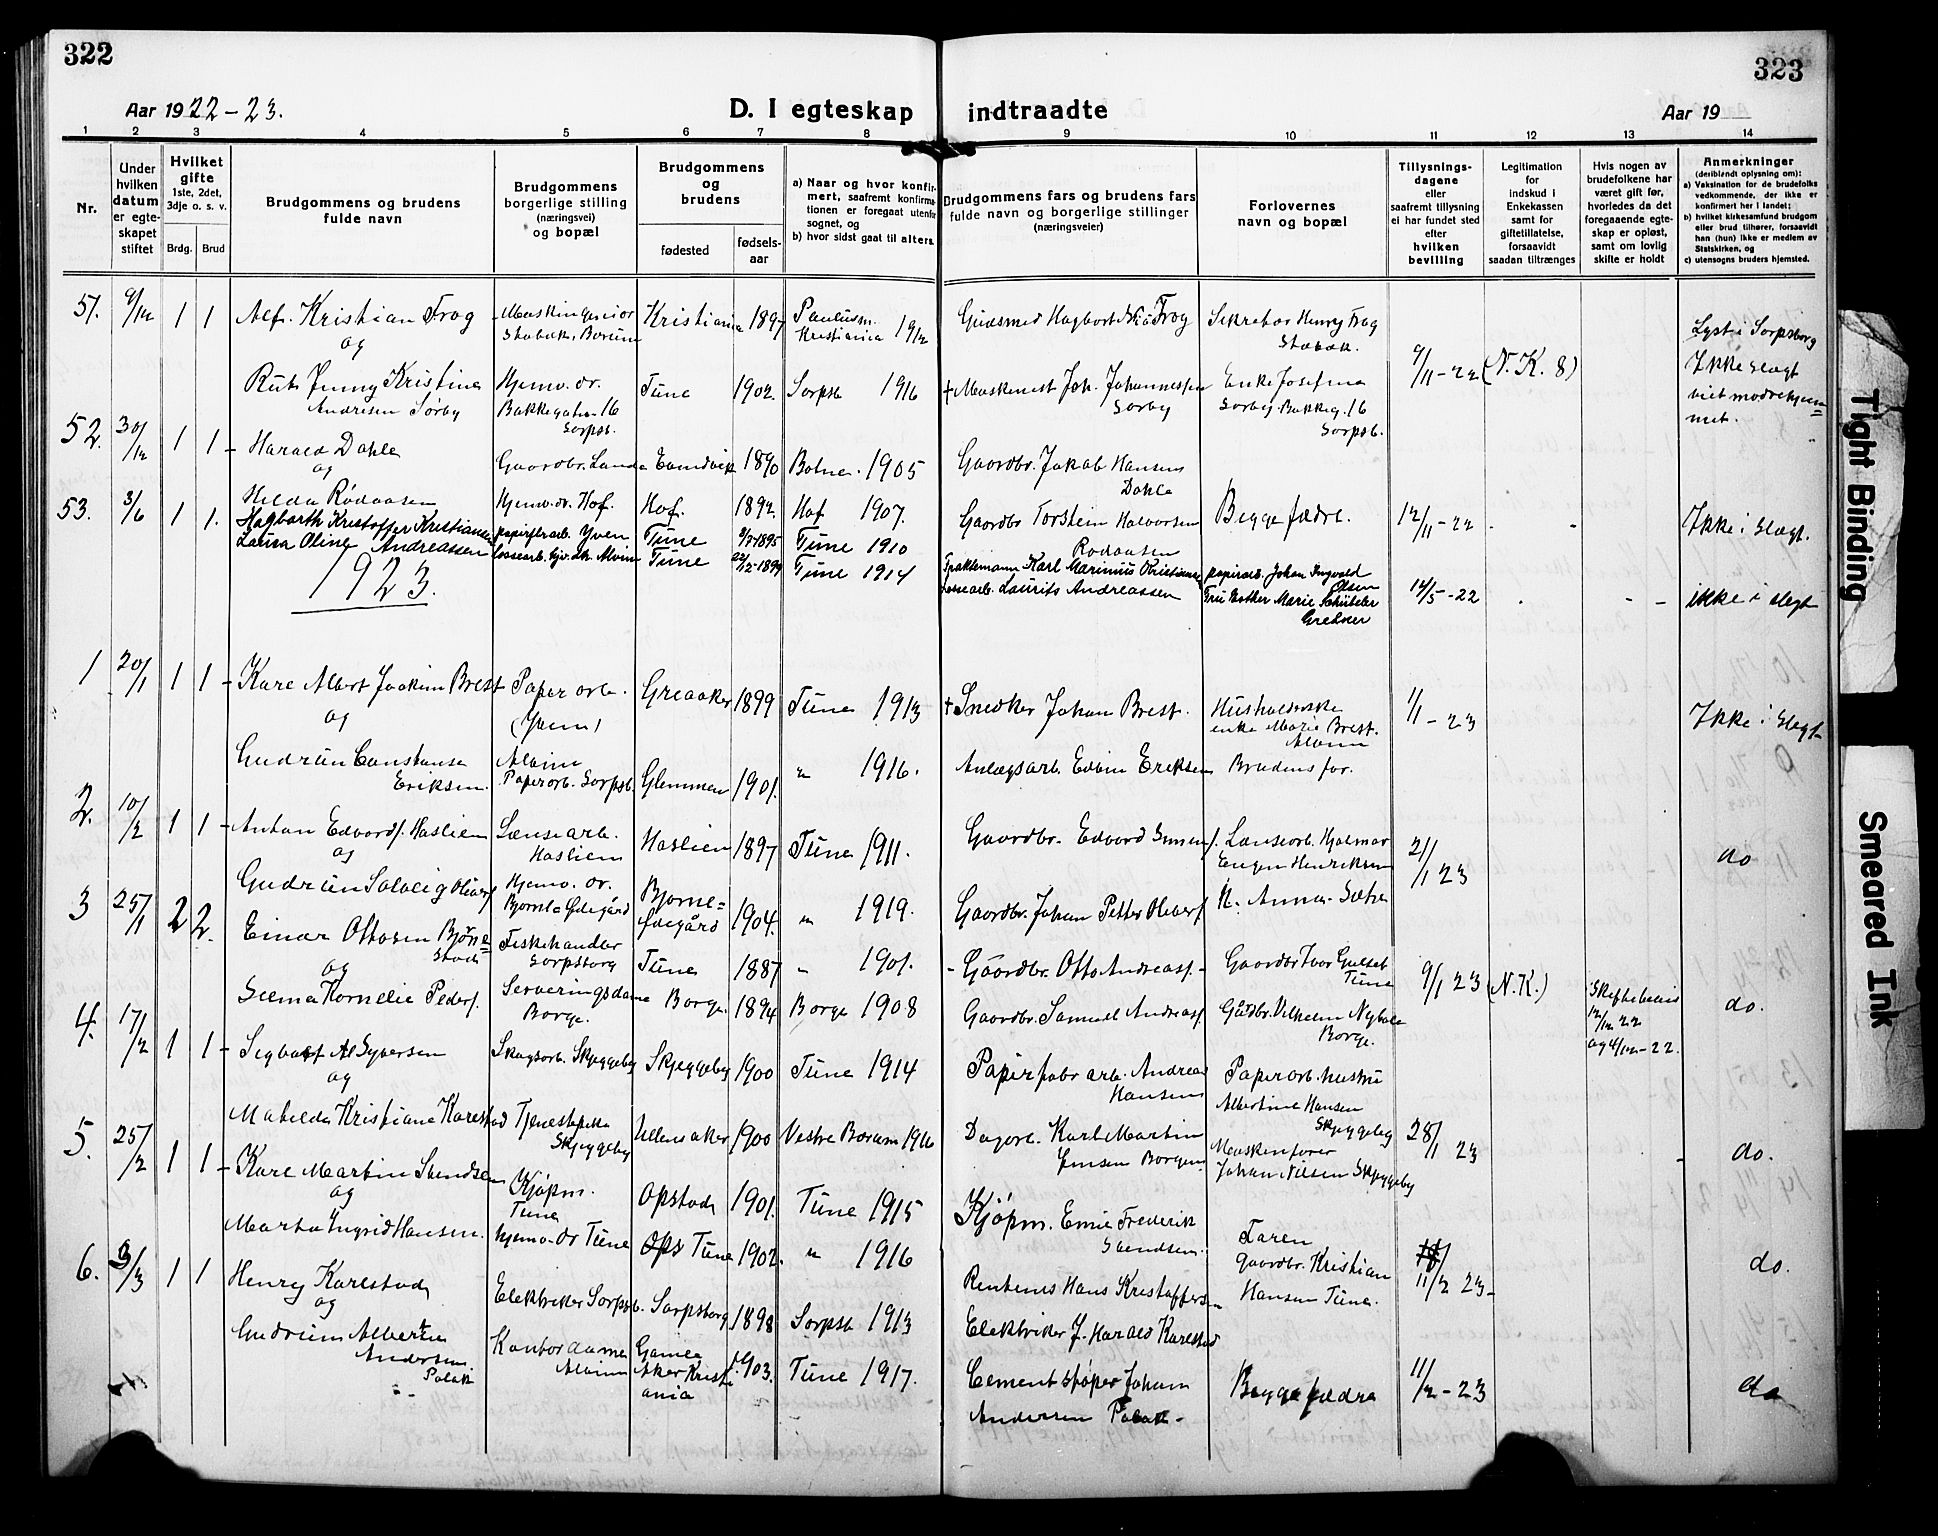 322
323
Aar 1922-23.
D. I egteskap indtraadte
Aar 19
1 2 3 4 5 6 7 8 9 10 11 12 13 14
Nr.
Under
hvilken
datum
er egte-
skapet
stiftet
Hvilket
gifte
1ste, 2det,
3dje o. s. v.
Brdg. Brud
Brudgommens og brudens
fulde navn
Brudgommens
borgerlige stilling
(næringsvei)
og bopæl
Brudgommens
og
brudens
fødested
fødsels-
aar
a) Naar og hvor konfir-
mert, saafremt konfirma-
tionen er foregaat utenfor
sognet, og
b) hvor sidst gaat til alters.
Brudgommens fars og brudens fars
fulde navn og borgerlige stillinger
(næringsveier)
Forlovernes
navn og bopæl
Tillysnings-
dagene
eller
saafremt tillysning
ei har fundet sted
efter
hvilken
bevilling
Legitimation
for
indskud i
Enkekassen
samt for
giftetillatelse,
forsaavidt
saadan tiltrænges
Hvis nogen av
brudefolkene har
været gift før,
hvorledes da det
foregaaende egte-
skap er opløst,
samt om lovlig
skifte er holdt
Anmerkninger
(deriblandt oplysning om):
a) Vaksination for de brudefolks
vedkommende, der ikke er
konfirmert her i landet;
b) hvilket kirkesamfund brudgom
eller brud tilhører, forsaavidt
han (hun) ikke er medlem av
Statskirken, og
c) utensogns bruders hjemsted.
51. 9/12 1 1 Alf. Kristian Frog Kristiania 1897 Kristiania 1912 Hagbart Frog Sekretær Henry Frog
og Stabæk. 9/11-22 (N.K. 8) Lyst i Sarpsborg
Rut Jenny Kristine Hjemv. dr. Tune 1902. Sarpsb 1916 + Maskinist Joh. Johannessen Enke Josefine Ikke slegt
Andresen Sørby Bakkegaten 16 Sarpsb. Sørby Sørby Bakkeg. 16 Sarpsb.
52. 30/12 1 1 - Harald Dahle Gaardbr. Sande 1890 Botne 1905 Gaardbr. Jakob Hansen
og Dahle
Hilda Rødaasen Hjemv. dr. Hof. Hof. 1892. Hof 1907. Gaardbr Torstein Halvorsen Begge fædre. 12/11-22 Ikke i slegt.
Rødaasen
53. 3/6 1 1. Hagbarth Kristoffer Kristiansen papirfarb. Yven Tune 1895 Tune 1910 Karl Marinius Kristiansen papirarb. Johan Ingvald Olsen
Laura Oline Andreassen Alvim Tune 1899 Tune 1914 Laurits Andreassen Marie Greåker 14/5-22 - - ikke i slegt
1923.
1 20/1 1 1 - Kare Albert Joakim Brest Papirarb. Greaaker 1899 Tune 1913 + Snedker Johan Brest. 1/1-23 Ikke i slegt
og enke Marie Brest. Alvim
Gudrun Constanse Alvim Glemmen 1901. " 1916. Anlægsarb. Edvin Eriksen Brudens far.
Eriksen. Papirarb. Sarpsb.
2. 10/2 1 1 - Anton Edvards. Haslien Lænsearb. Haslien 1897 Tune 1911. Gaardbr. Edvard Lænsearb. Hjalmar 21/1 23 do
og Haslien Eugen Henriksen
Gudrun Solveig Olivers. Hjemv. dr. Bjørne= 1904. " 1919. Gaardbr. Johan Petter Olivers. Anna Sætre
ødegård
3 25/1 2 2. Einar Ottosen Bjørne= Fiskehandler Tune 1887 " 1901. - Gaardbr. Otto Andreass. - Gaardbr Ivar Tune 9/1 23 (N.K.) 12/12 22 do.
stad Sarpsborg
og
Selma Kornelie Peders. Serveringsdame Borge. 1894 Borge 1908 Gaardbr. Samuel Andreass. Gårdbr. Vilhelm Borge. og 4/12-22.
Borge.
4. 17/2 1 1 - Sigbart Al Syversen Skogsarb. Skjeggeby Skjeggeby 1900 Tune 1914 Papirfabr arb. Andreas Papirarb. hustru
og Hansen Albertine Hansen
Matilde Kristiane Karlstad Skjeggeby Ullensaker 1900 Vestre Bærum 1916 Dagarb. Karl Martin Skjeggeby 28/1 23 do.
Jensen Maskinfører Johan Nilsen Skjeggeby
5. 25/2 1 1 - Kare Martin Svendsen Kjøpm. Opstad 1901. Tune 1915 Kjøpm. Emil Frederik Faren
og Tune Svendsen.
Marta Ingrid Hansen. hjemv. dr Tune Ops Tune 1902. " 1916 Rentenist Hans Kristoffersen Gaardbr. Kristian Hansen Tune. 11/2 23- do.
6. 3/3 1 1 Henry Karlstad Elektriker Sarpsb. Sarpsborg 1898 Sarpsb 1913 Elektriker J. Harald Karlstad
og
Gudrun Albertine Kontordame Gamle 1903. Tune 1917. Cementstøper Johan Begge fædre 11/2-23 do
Andersen. Alvim Aker Kristi Andersen Polak -
Polak ania
Tight Binding
Smeared Ink